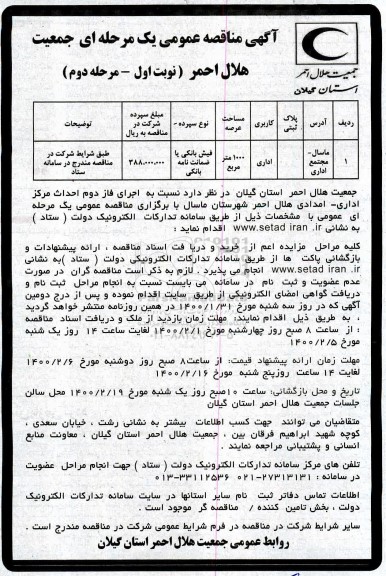 آگهی مناقصه عمومی یک مرحله ای جمعیت
هلال احمر (نوبت اول - مرحله دوم)
جمعیت هلال احمر
استان گیلان
ردیف
آدرس
پلاک ثبتی
کاربری
مساحت عرصه
نوع سپرده -
مبلغ سپرده شرکت در مناقصه به ریال
توضیحات
۱
ماسال- مجتمع اداری
اداری
۱۰۰۰ متر مربع
فیش بانکی یا ضمانت نامه بانکی
۳۸۸.۰۰۰.۰۰۰
طبق شرایط شرکت در مناقصه مندرج در سامانه ستاد
جمعیت هلال احمر استان گیلان در نظر دارد نسبت به اجرای فاز دوم احداث مرکز
اداری- امدادی هلال احمر شهرستان ماسال با برگزاری مناقصه عمومی یک مرحله
ای عمومی با مشخصات ذیل از طریق سامانه تدارکات الکترونیک دولت ( ستاد )
به نشانی www.setad iran .ir اقدام نماید :
کلیه مراحل مزایده اعم از خرید و دریا فت اسناد مناقصه ، ارائه پیشنهادات و
بازگشائی پاکت ها از طریق سامانه تدارکات الکترونیکی دولت ( ستاد )به نشانی
www.setad iran .ir انجام می پذیرد . لازم به ذکر است مناقصه گران در صورت
عدم عضویت و ثبت نام در سامانه می بایست نسبت به انجام مراحل ثبت نام و
دریافت گواهی امضای الکترونیکی از طریق سایت اقدام نموده و پس از درج دومین
آگهی که در روز سه شنبه مورخ ۱۴۰۰/۱/۳۱ در همین روزنامه منتشر خواهد گردید
، به طریق ذیل اقدام نمایند: مهلت زمان بازدید از ملک و دریافت اسناد مناقصه
: از ساعت ۸ صبح روز چهارشنبه مورخ ۱۴۰۰/۲/۱ لغایت ساعت ۱۴ روز یک شنبه
مورخ ۱۴۰۰/۲/۵
مهلت زمان ارائه پیشنهاد قیمت: از ساعت۸ صبح روز دوشنبه مورخ ۱۴۰۰/۲/۶
لغایت ۱۴ ساعت روزپنج شنبه مورخ ۱۴۰۰/۲/۱۶
تاریخ و محل بازگشائی: ساعت ۱۰صبح روز یک شنبه مورخ ۱۴۰۰/۲/۱۹ محل سالن
جلسات جمعیت هلال احمر استان گیلان
متقاضیان می توانند جهت کسب اطلاعات بیشتر به نشانی رشت ، خیابان سعدی ،
کوچه شهید ابراهیم فرقان بین ، جمعیت هلال احمر استان گیلان ، معاونت منابع
انسانی و پشتیبانی مراجعه نمایند .
تلفن های مرکز سامانه تدارکات الکترونیک دولت ( ستاد ) جهت انجام مراحل عضویت
در سامانه : ۲۷۳۱۳۱۳۱-۰۲۱ ۳۳۱۱۲۵۳۶-۰۱۳
اطلاعات تماس دفاتر ثبت نام سایر استانها در سایت سامانه تدارکات الکترونیک
دولت ، بخش تامین کننده / مناقصه گر موجود است .
سایر شرایط شرکت در مناقصه در فرم شرایط عمومی شرکت در مناقصه مندرج است .
روابط عمومی جمعیت هلال احمر استان گیلان